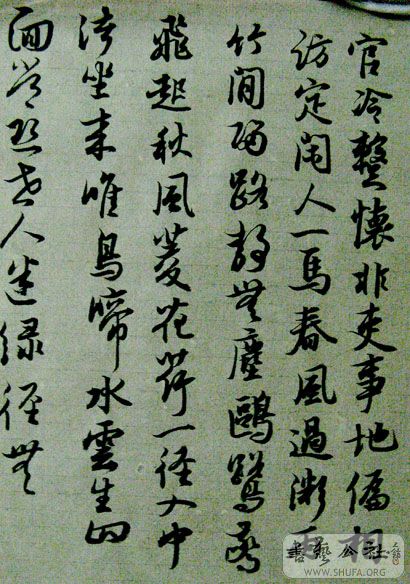 官冷整懷非吏事地偏相
訪定閑人一馬春風過
竹間歸路静無塵鷗鷺
飛起秋風菱花荇一徑入中
坐来唯鳥啼水雲生四
面常恐世人迷緑徑無
書藝公社
WWW.SHUFA.ORG